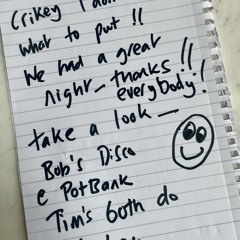 Crikey I don
what to put !!
We had a great
night - thanks !!
everybody!
take a look —
Bob's Disco
@ PotBank
Tim's 60th do